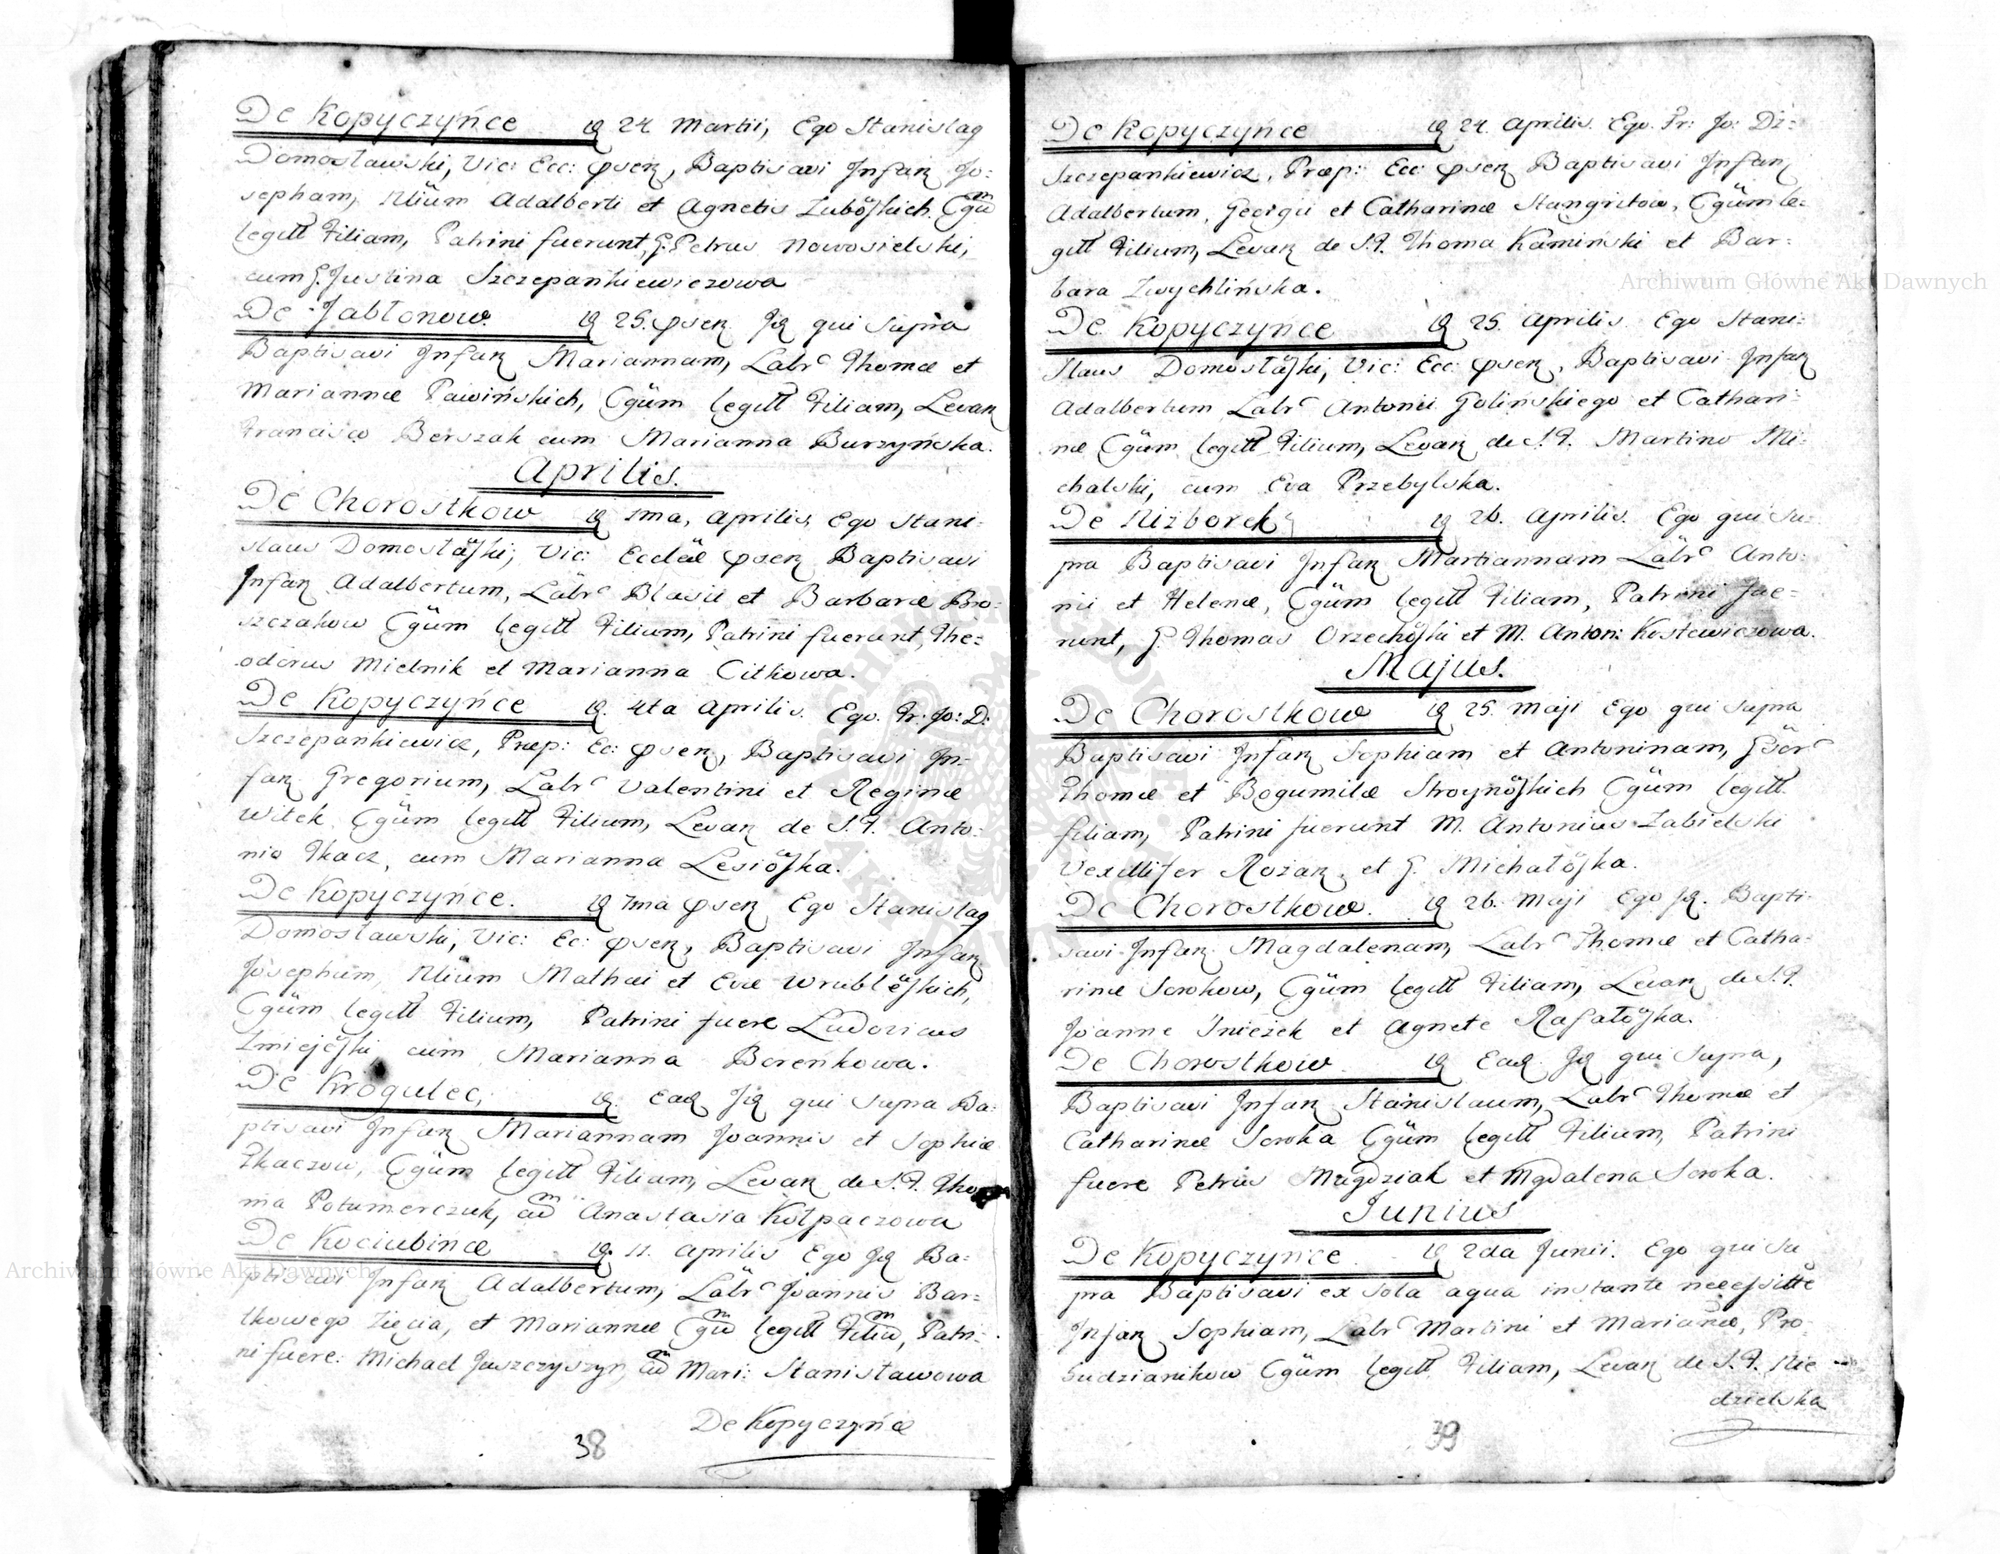 De Kopyczyńce D 24 Martii, Ego Stanislaq
Domosławski, Vic: Ecc: ψsen, Baptisavi Infan Jo:
sepham, Nlium Adalberti et Agnetis Cgum
legitt Filiam, Patrini fuerunt, G. Petrus Nowosielski,
cum G. Justina Szczepankiewiczowa
De Jabłonow. D 25. ψsen. Id qui supra
Baptisavi Infan Mariannam, Labr Thomæ et
Mariannæ Pawińskich, Cgum legitt Filiam, Levan
Francisco Berszak cum Marianna Burzyńska.
Aprilis.
De Chorostkow D 1ma, Aprilis, Ego Stani:
slaus Domosłaski, Vic: Ecclæ ψsen Baptisavi
Infan Adalbertum, Labr Blasii et Barbaræ Bro:
szczakow Cgum legitt Filium, Patrini fuerunt, The=
odorus Mielnik et Marianna Citkowa.
De Kopyczyńce D. 4ta Aprilis. Ego. Fr: Jo: D:
Szczepankiewicz, Præp: Ec: ψsen, Baptisavi In-
fan Gregorium, Labr Valentini et Reginæ
Witek Cgum legitt Filium, Levan de S. F. Anto:
nio Tkacz, cum Marianna Lesiöska.
De Kopyczyńce. D 7ma ψsen Ego Stanislaq
Domosławski, Vic: Ec: ψsen, Baptisavi Infan
Josephum, Nlium Mathæi et Evæ Wrublëskich,
Cgum legitt Filium, Patrini fuere Ludovicus
Zmiejëski cum Marianna Bereńkowa.
De Krogulec, D. Ead Id qui supra Ba:
ptisavi Infan Mariannam Joannis et Sophiæ
Tkaczow, Cgum legitt Filiam, Levan de S. F. Tho
ma Potumerczuk, cum Anastasia Kołpaczowa
De Kociubincæ D. 11. Aprilis Ego Id Ba:
ptisavi Infan Adalbertum, Labr Joannis Bar=
tkowego Zięcia, et Mariannæ Cgum legitt Filium, Patri:
ni fuere: Michael Jaszczyszyn, cum Mari: Stanisławowa
De Kopyczyńcæ
38
De Kopyczyńce D 24. Aprilis. Ego. Fr: Jo: Dż:
Szczepankiewicz, Præp: Ecc: ψsen Baptisavi Infan
Adalbertum, Georgii et Catharinæ Stangritow, Cgum le:
gitt Filium, Levan de S. F. Thoma Kamiński et Bar:
bara Zwychlińska.
De Kopyczynce D 25. Aprilis. Ego Stani:
slaus Domosłäski, Vic: Ecc: ψsen, Baptisavi Infan
Adalbertum Labr Antonii Golińskiego et Cathari=
næ Cgum legitt Filium, Levan de S. F. Martino Mi:
chalski, cum Eva Przebylska.
De Niżborek D 26. Aprilis. Ego qui su:
pra Baptisavi Infan Martiannam Labr Anto:
nii et Helenæ, Cgum legitt Filiam, Patrini fue=
runt, G. Thomas Orzechöski et M. Anton: Kostewiczowa.
Majus.
De Chorostkow D 25. Maji Ego qui supra
Baptisavi Infan Sophiam et Antoninam,
Thomæ et Bogumilæ Stroynöskich Cgum legitt
filiam, Patrini fuerunt M. Antonius Zabielski
Vexillifer Rożan, et G. Michałöska.
De Chorostkow. D 26. Maji Ego Id. Bapti:
savi Infan Magdalenam, Labr Thomæ et Catha:
rinæ Sorokow, Cgum legitt Filiam, Levan de S. F.
Joanne Śnieżek et Agnete Rafałöska.
De Chorostkow D Ead Id qui supra,
Baptisavi Infan Stanislaum, Labr Thomæ et
Catharinæ Soroka Cgum legitt Filium, Patrini
fuere Petrus Magdziak et Mgdalena Soroka.
Junius
De Kopyczynce D 2da Junii. Ego qui su
pra Baptisavi ex sola aqua instante necessitte
Infan Sophiam, Labr Martini et Mariañæ, Pro:
budzianikow Cgum legitt Filiam, Levan de S. F. Nie
dzielska
39
Archiwum Główne Akt Dawnych
Archiwum Główne Akt Dawnych